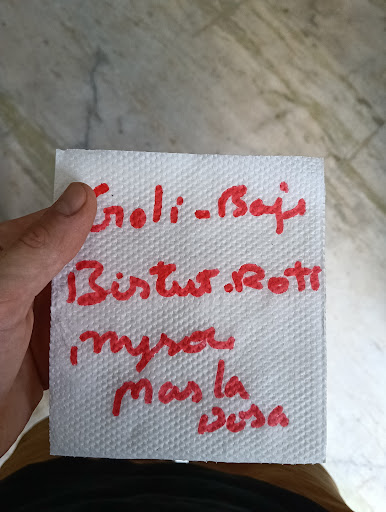 Goli-Baje
Bistut.Roti
mysou
masla
Dosa